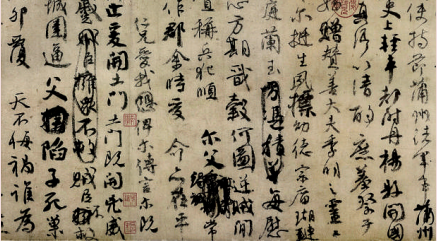 使持節蒲州諸軍事蒲州
史上輕車都尉丹楊縣開國
真卿以清酌庶羞祭于
姪贈贊善大夫季明之靈曰
爾挺生夙標幼德宗廟瑚璉
庭蘭玉每慰
心方期戩穀何圖逆賊閒
稱兵犯順 爾父竭誠常
作郡余時受命亦在平
仁兄愛我俾爾傳言爾既
止爰開土門土門既開凶威
蹙賊臣擁眾不救
城圍逼父陷子死巢
卵覆 天不悔禍誰為